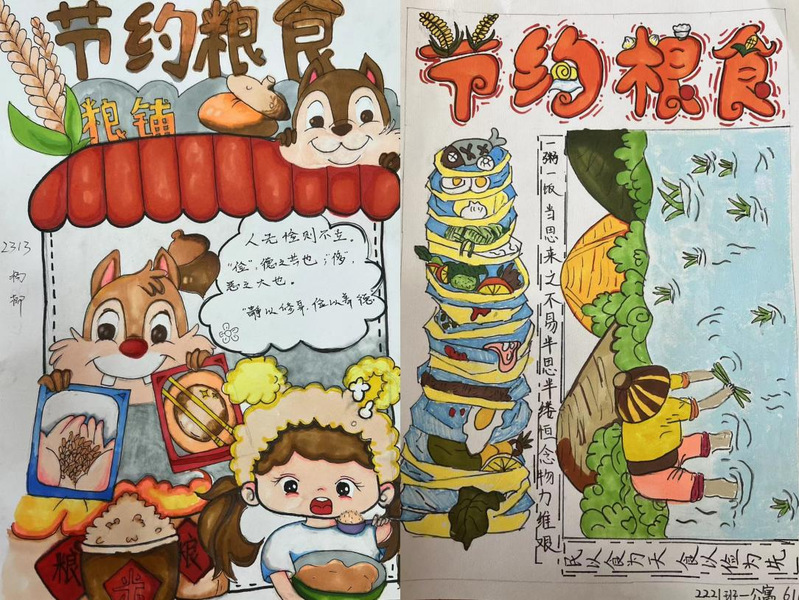 节约粮食
粮铺
人无俭则不立。
"俭",德之共也;"侈",
恶之大也。
"静以修身,俭以养德"
2313
杨柳
粮
米
粮
节约粮食
一粥一饭当思来之不易半思半缕恒念物力维艰
民以食为天 食以俭为先
2221班一公寓 611